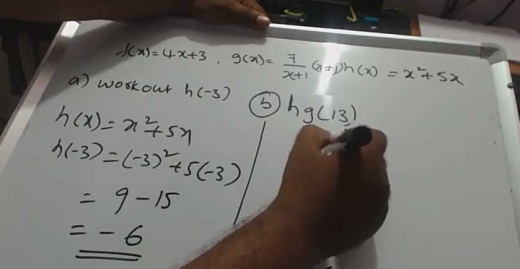 f(x) = 4x+3 , g(x) = 7/x+1 h(x) = x²+5x
a) workout h(-3)
h(x) = x²+5x
h(-3) = (-3)²+5(-3)
= 9 - 15
= - 6
b) hg(13)